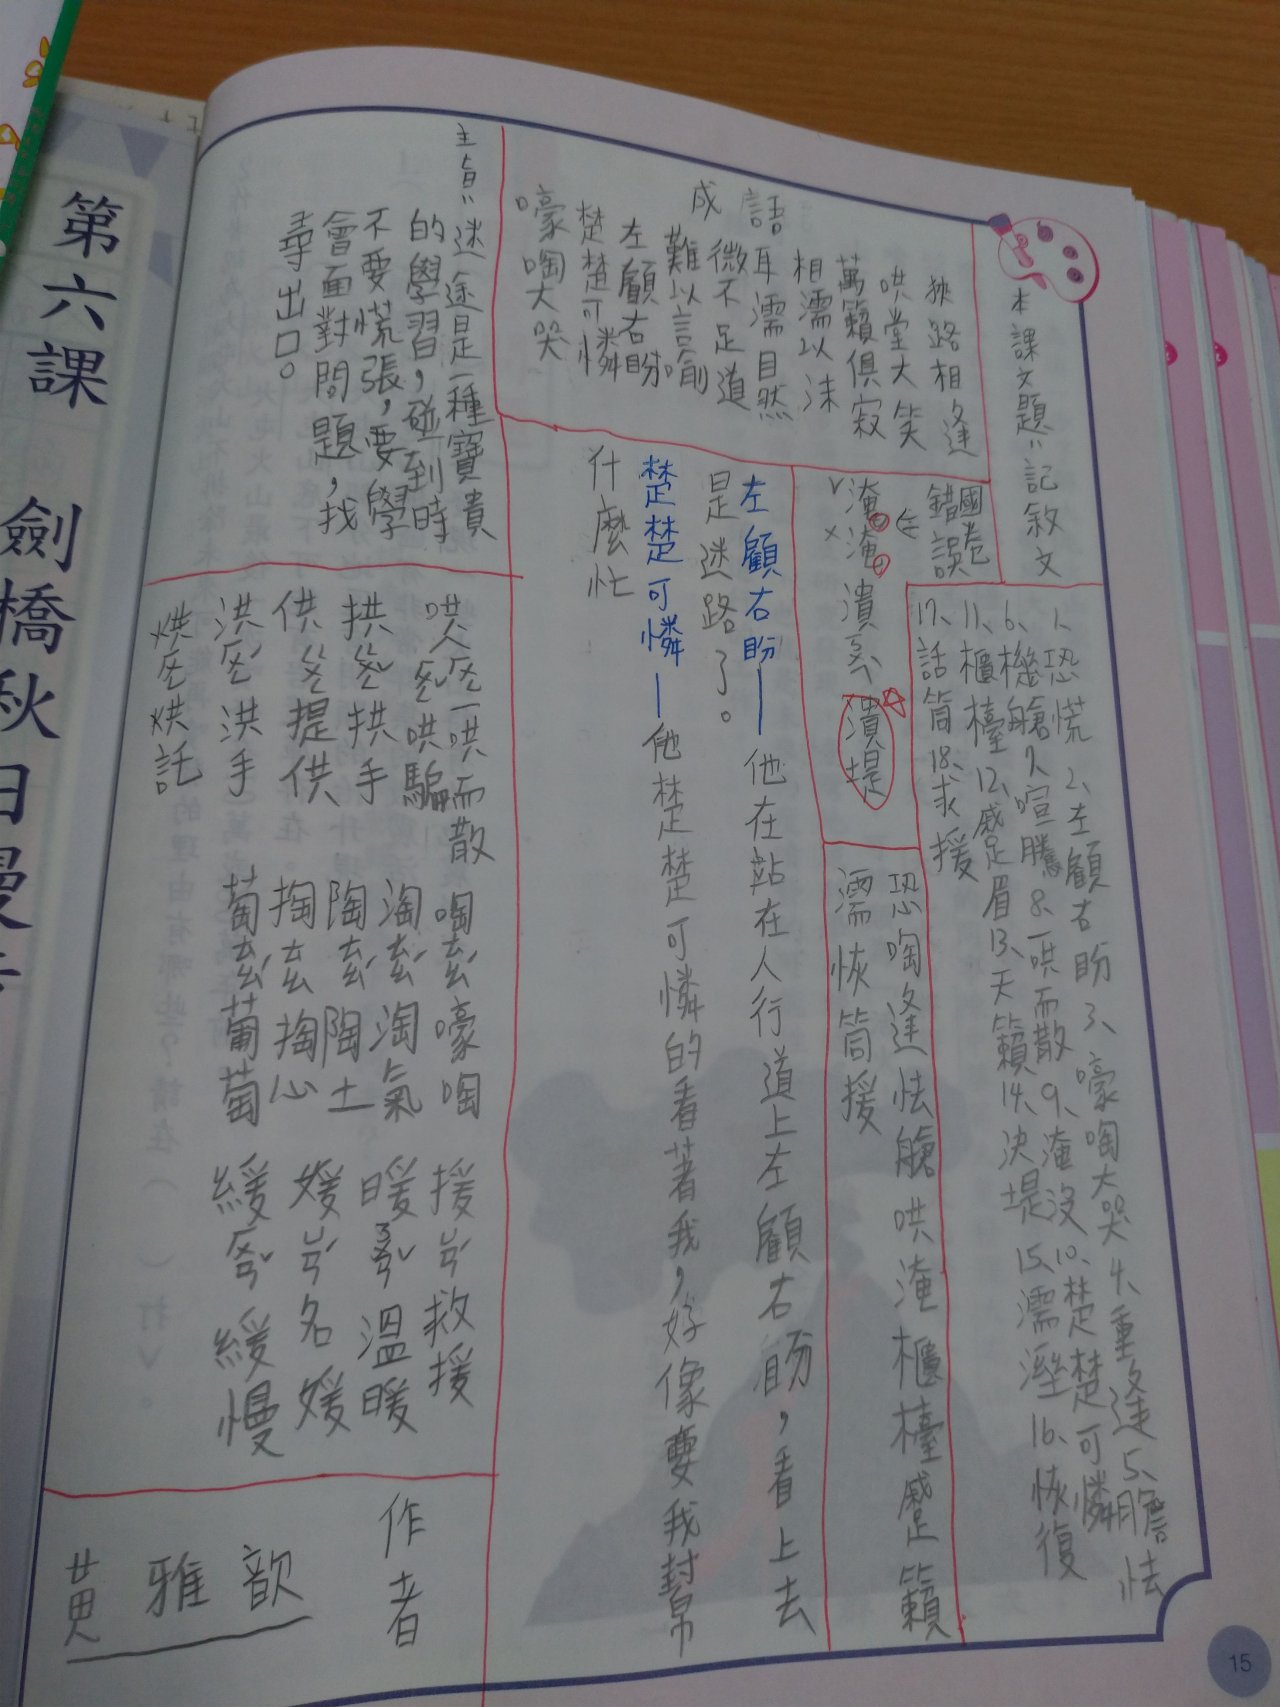 本課文題：記敘文
1、恐慌 2、左顧右盼 3、嚎啕大哭 4、重逢 5、膽怯
6、機艙 7、喧騰 8、一哄而散 9、淹沒 10、楚楚可憐
11、櫃檯 12、蹙眉 13、天籟 14、決堤 15、濡溼 16、恢復
17、話筒 18、求援
國卷
錯誤
淹
淹
潰
潰堤
恐啕逢怯艙哄淹櫃檯蹙籟
濡恢筒援
成語
狹路相逢
哄堂大笑
萬籟俱寂
相濡以沫
耳濡自然
微不足道
難以言喻
左顧右盼
楚楚可憐
嚎啕大哭
左顧右盼——他在站在人行道上左顧右盼，看上去
是迷路了。
楚楚可憐——他楚楚可憐的看著我，好像要我幫
什麼忙
主旨：迷途是一種寶貴
的學習，碰到時
不要慌張，要學
會面對問題，找
尋出口。
一哄而散
哄騙
拱手
供 提供
洪 洪手
烘 烘託
啕ㄊㄠˊ嚎啕
淘ㄊㄠˊ淘氣
陶ㄊㄠˊ陶土
掏ㄊㄠ掏心
萄ㄊㄠˊ葡萄
援ㄩㄢˊ救援
暖ㄋㄨㄢˇ溫暖
媛ㄩㄢˊ名媛
緩ㄏㄨㄢˇ緩慢
作者
黃雅歆
第六課 劍橋秋日漫
15